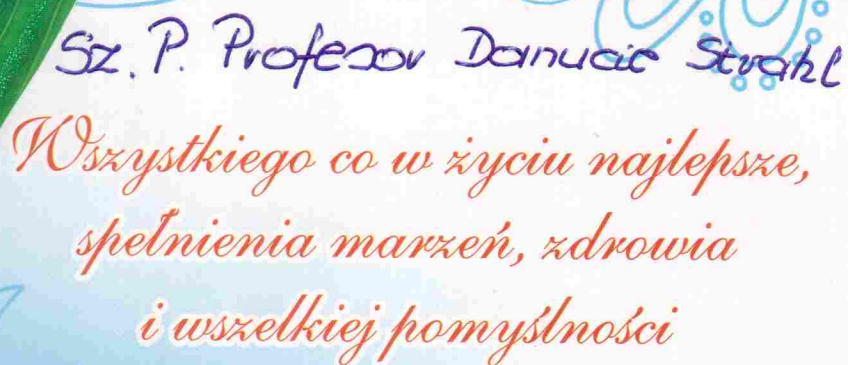 Sz. P. Profesor Danucie Strahl
Wszystkiego co w życiu najlepsze,
spełnienia marzeń, zdrowia
i wszelkiej pomyślności